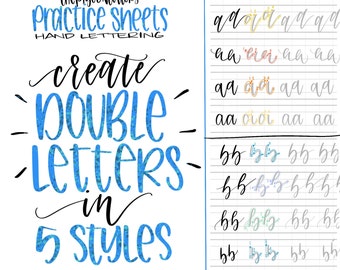 Practice Sheets
HAND LETTERING
create
DOUBLE
LETTERS
in
5 STYLES
aa aa aa aa
aa aa aa aa
aa aa aa aa
aa aa aa aa
bb bb bb bb
bb bb bb bb
bb bb bb bb
bb bb bb bb